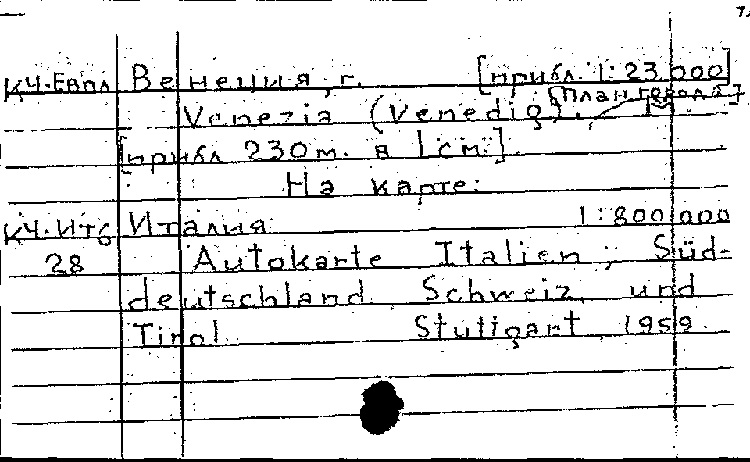 КЧ-Евпл Венеция, г. [прибл. 1:23 000]
Venezia (Venedig). [План города]
[прибл 230 м. в 1 см.]
На карте:
КЧ-Ит6 Италия 1:800 000
28 Autokarte Italien; Süd-
deutschland Schweiz und
Tirol Stuttgart 1959